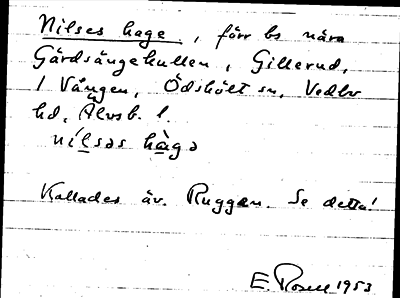 Nilses hage, förr bs nära
Gärdsängekullen, Gillerud,
1 Vången, Ödskölt sn, Vedbo
hd, Älvsb. l.
nilsəs hàgə
Kallades äv. Ruggen. Se detta!
E. Rosell 1953